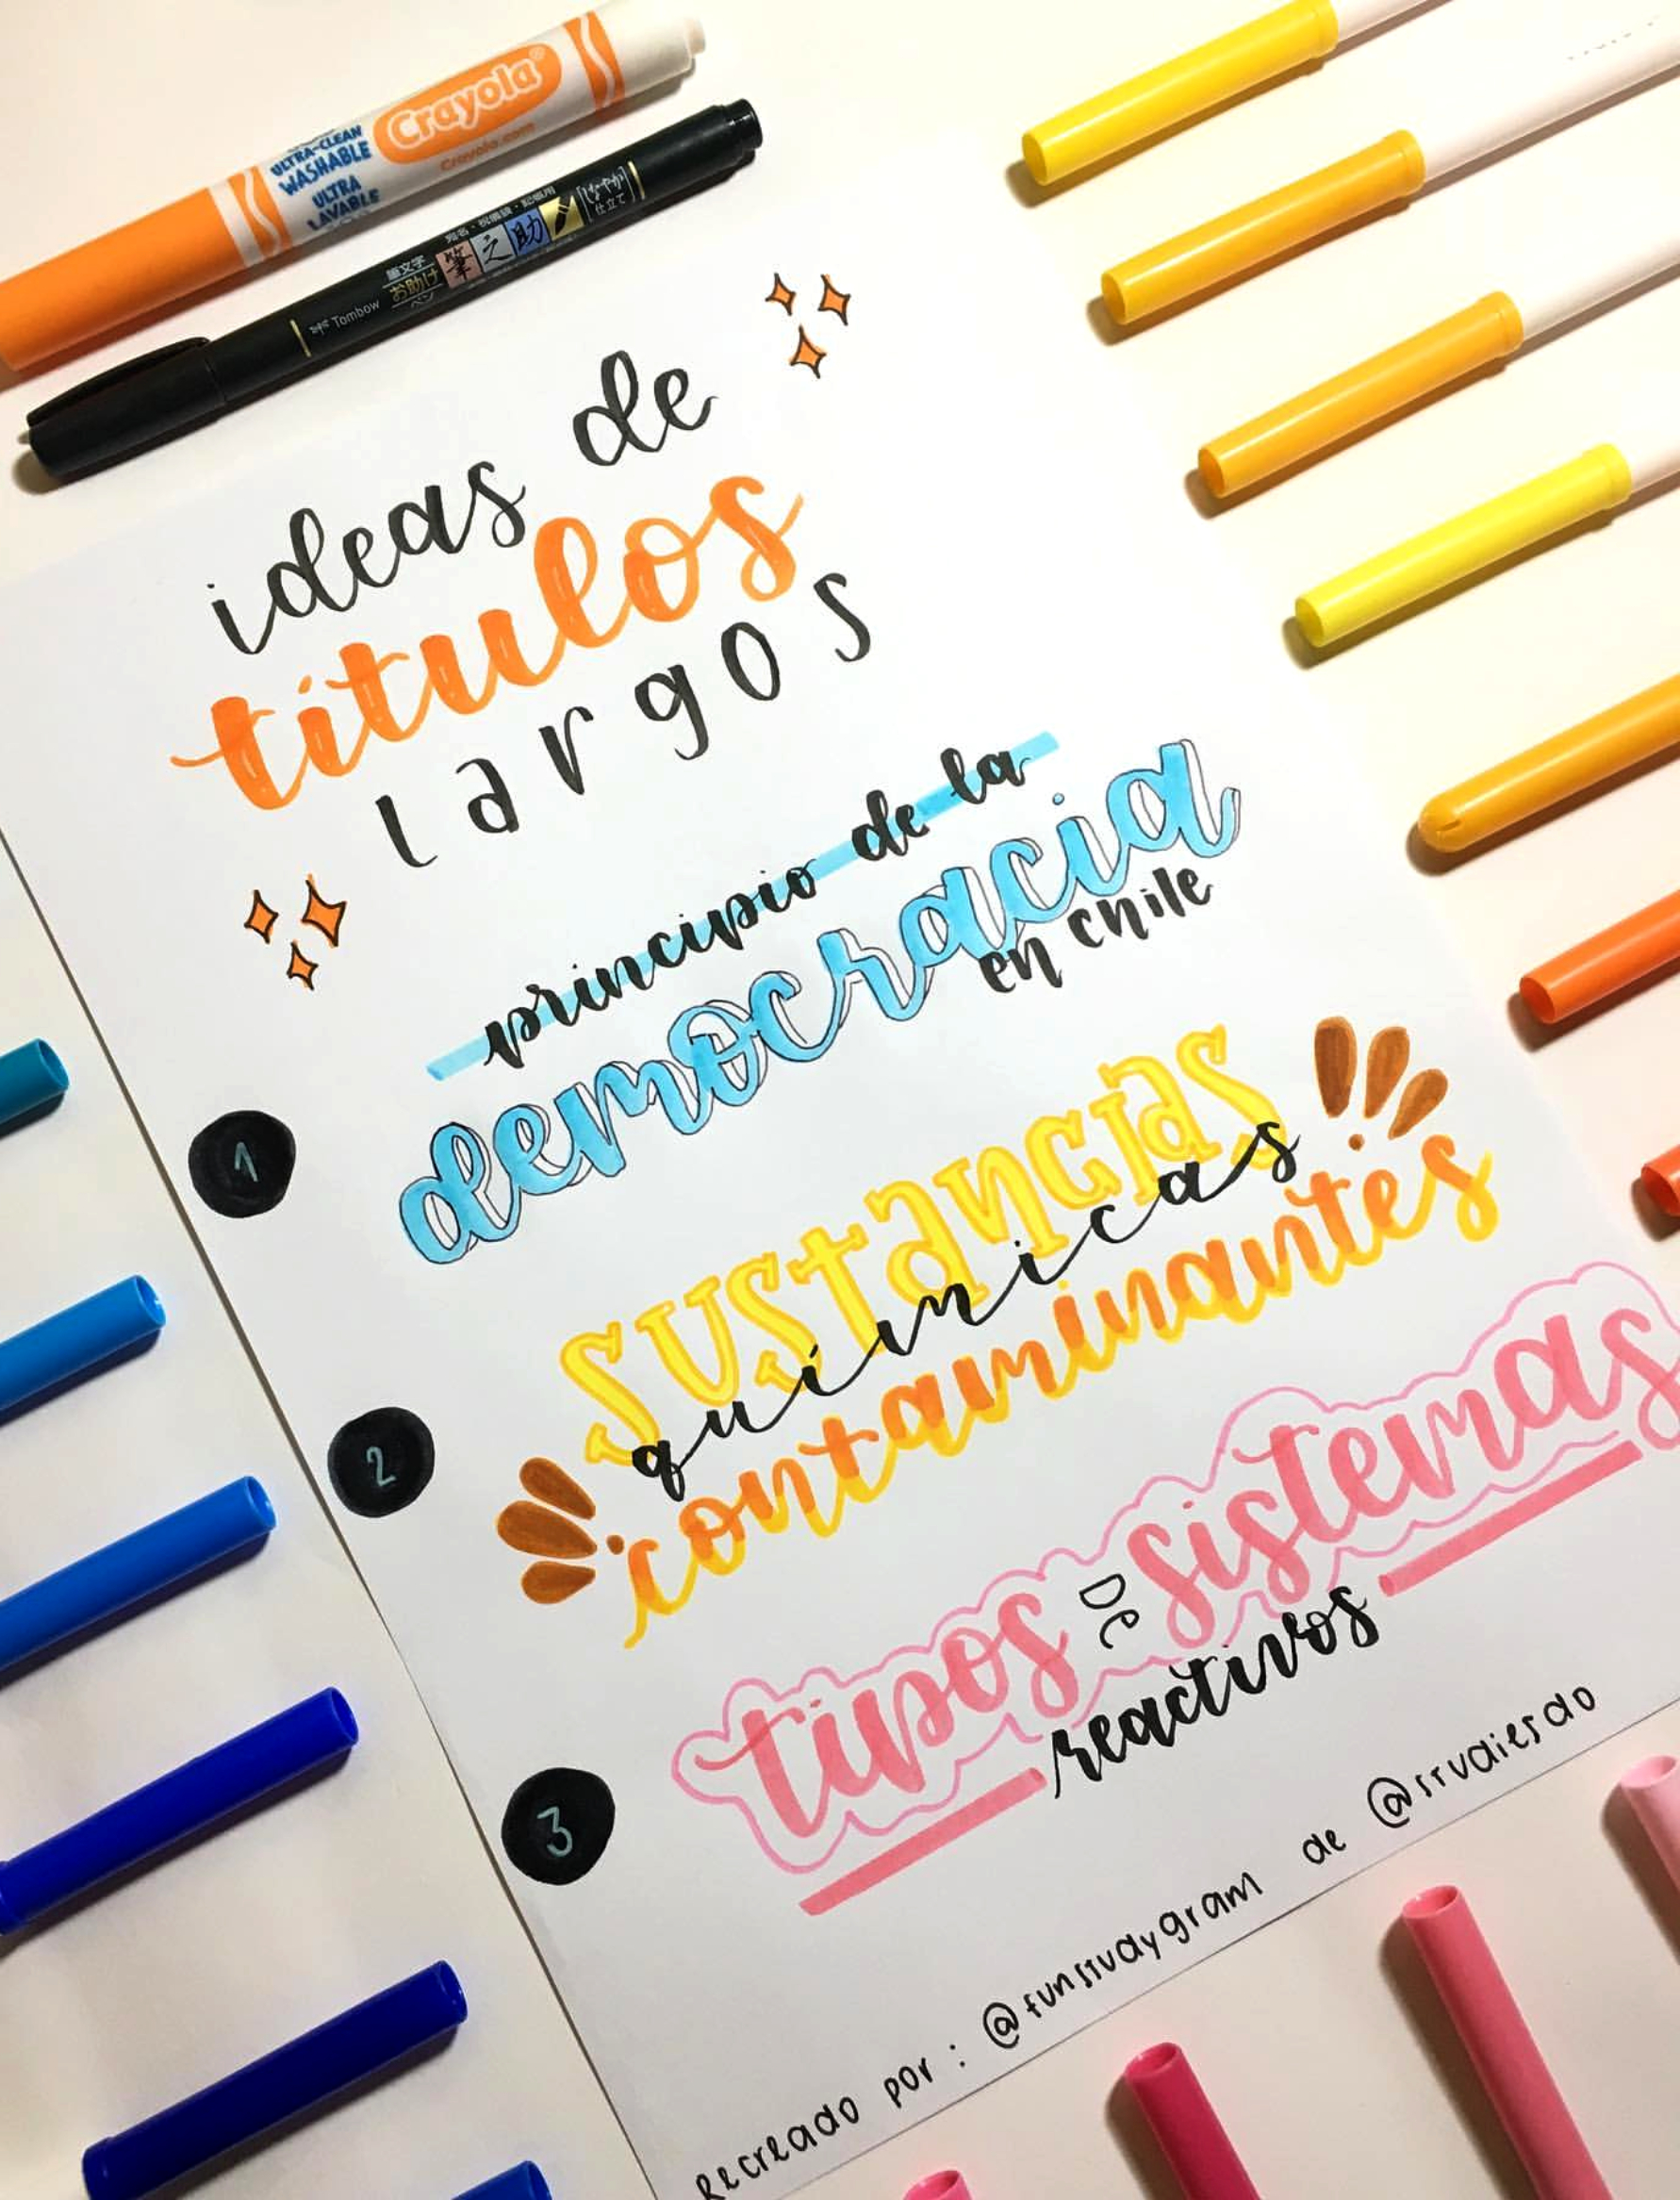 ULTRA-CLEAN
WASHABLE
ULTRA
LAVABLE
Crayola
Crayola.com
Tombow
筆文字
お助け
ペン
宛名・祝儀袋・記帳用
筆之助
しなやか
仕立て
ideas de
títulos
largos
1
principio de la
democracia
en chile
2
sustancias
químicas
contaminantes
3
tipos de sistemas
reactivos
Recreado por: @funstudygram de @studiesdo